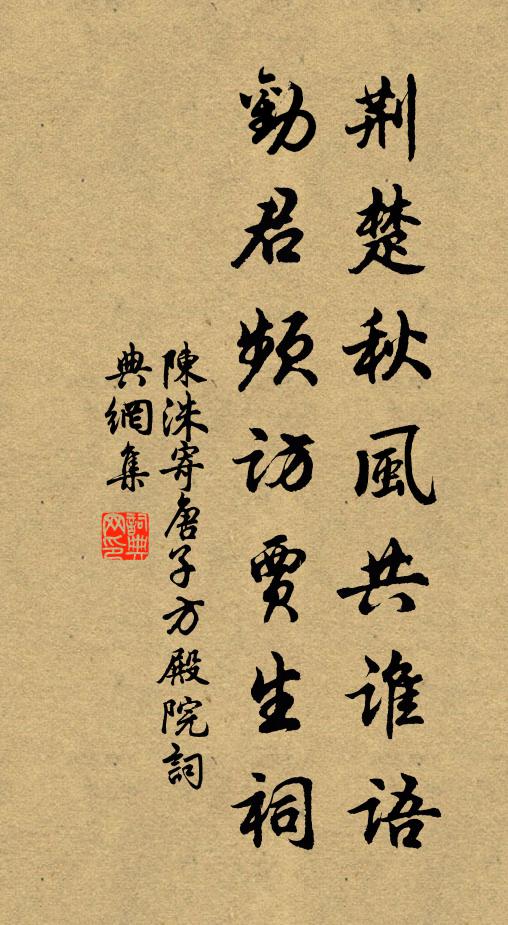 荆楚秋風共誰語
勸君頻訪賈生祠
陳洙寄唐子方殿院詞
典網集
詞典
网印